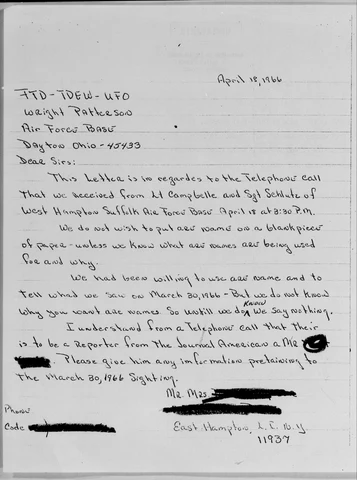 April 18, 1966
FTD-TDEW-UFO
Wright Patterson
Air Force Base
Dayton Ohio-45433
Dear Sirs:
This Letter is in regardes to the Telephone call
That we received from Lt Campbelle and Sgt Schultz of
West Hampton Suffolk Air Force Base April 18 at 3:30 P.M.
We do not wish to put are name on a blank piece
of paper-unless we know what are names are being used
for and why.
We had been willing to use are name and to
tell what we saw on March 30, 1966-But we do not know
Why you want are names. So untill we do know We say nothing.
I understand from a Telephone call that Their
is to be a Reporter from The Journal American a Mr
Please give him any information pretaining to
The March 30, 1966 Sighting.
Mr. Mrs.
Phone
Code
East Hampton, L.I. N.Y
11937